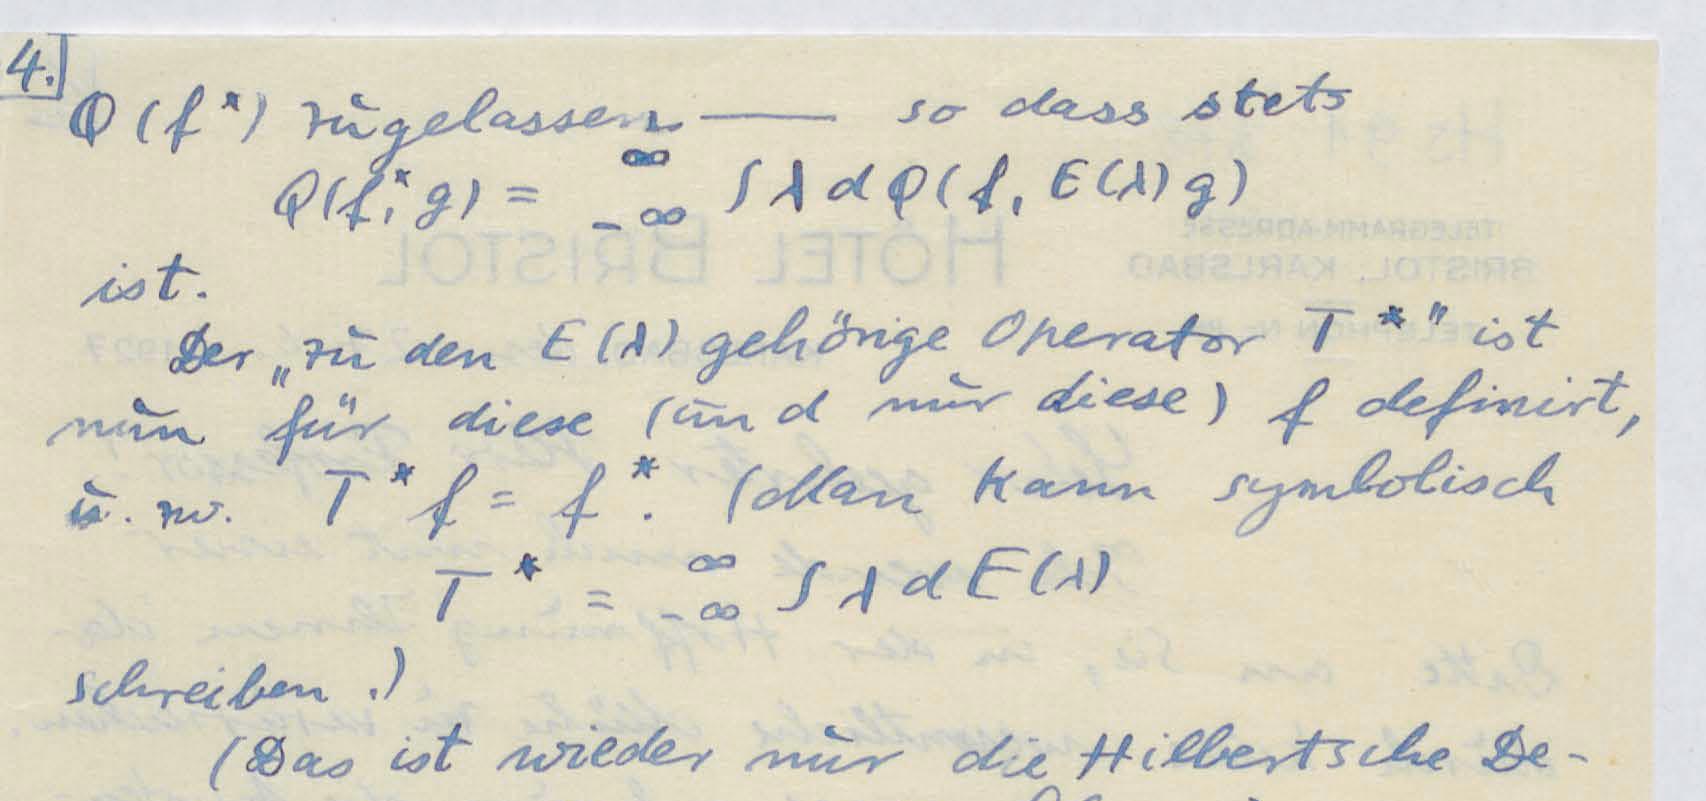 4.
Q(f*) zugelassen — so dass stets
Q(f*, g) = ∞ -∞ ∫ λ d Q(f, E(λ) g)
ist.
Der „zu den E(λ) gehörige Operator T*" ist
nun für diese (und nur diese) f definirt,
u. zw. T* f = f*. (Man kann symbolisch
T* = ∞ -∞ ∫ λ d E(λ)
schreiben.)
(Das ist wieder nur die Hilbertsche De-
HÔTEL BRISTOL
TELEGRAMM-ADRESSE
BRISTOL, KARLSBAD